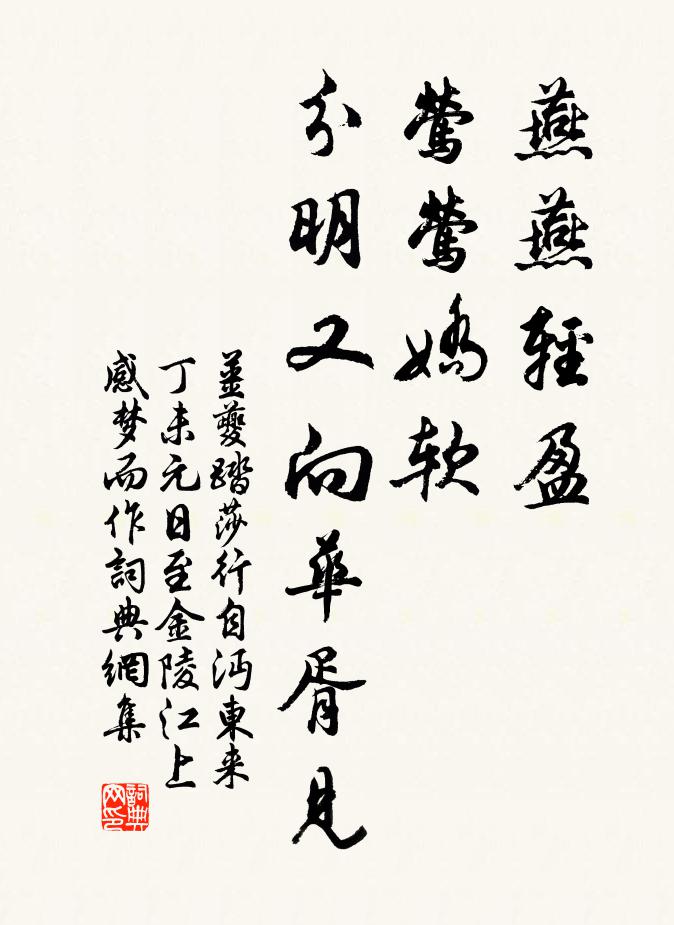 燕燕輕盈
鶯鶯嬌软
分明又向華胥見
姜夔踏莎行自沔東来
丁未元日至金陵江上
感梦而作詞典網集
詞典
网印